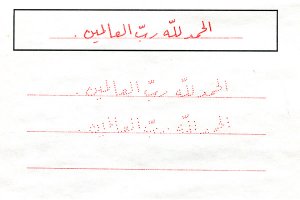 الحمد للّه ربّ العالمين .
الحمد للّه ربّ العالمين .
الحمد للّه ربّ العالمين .